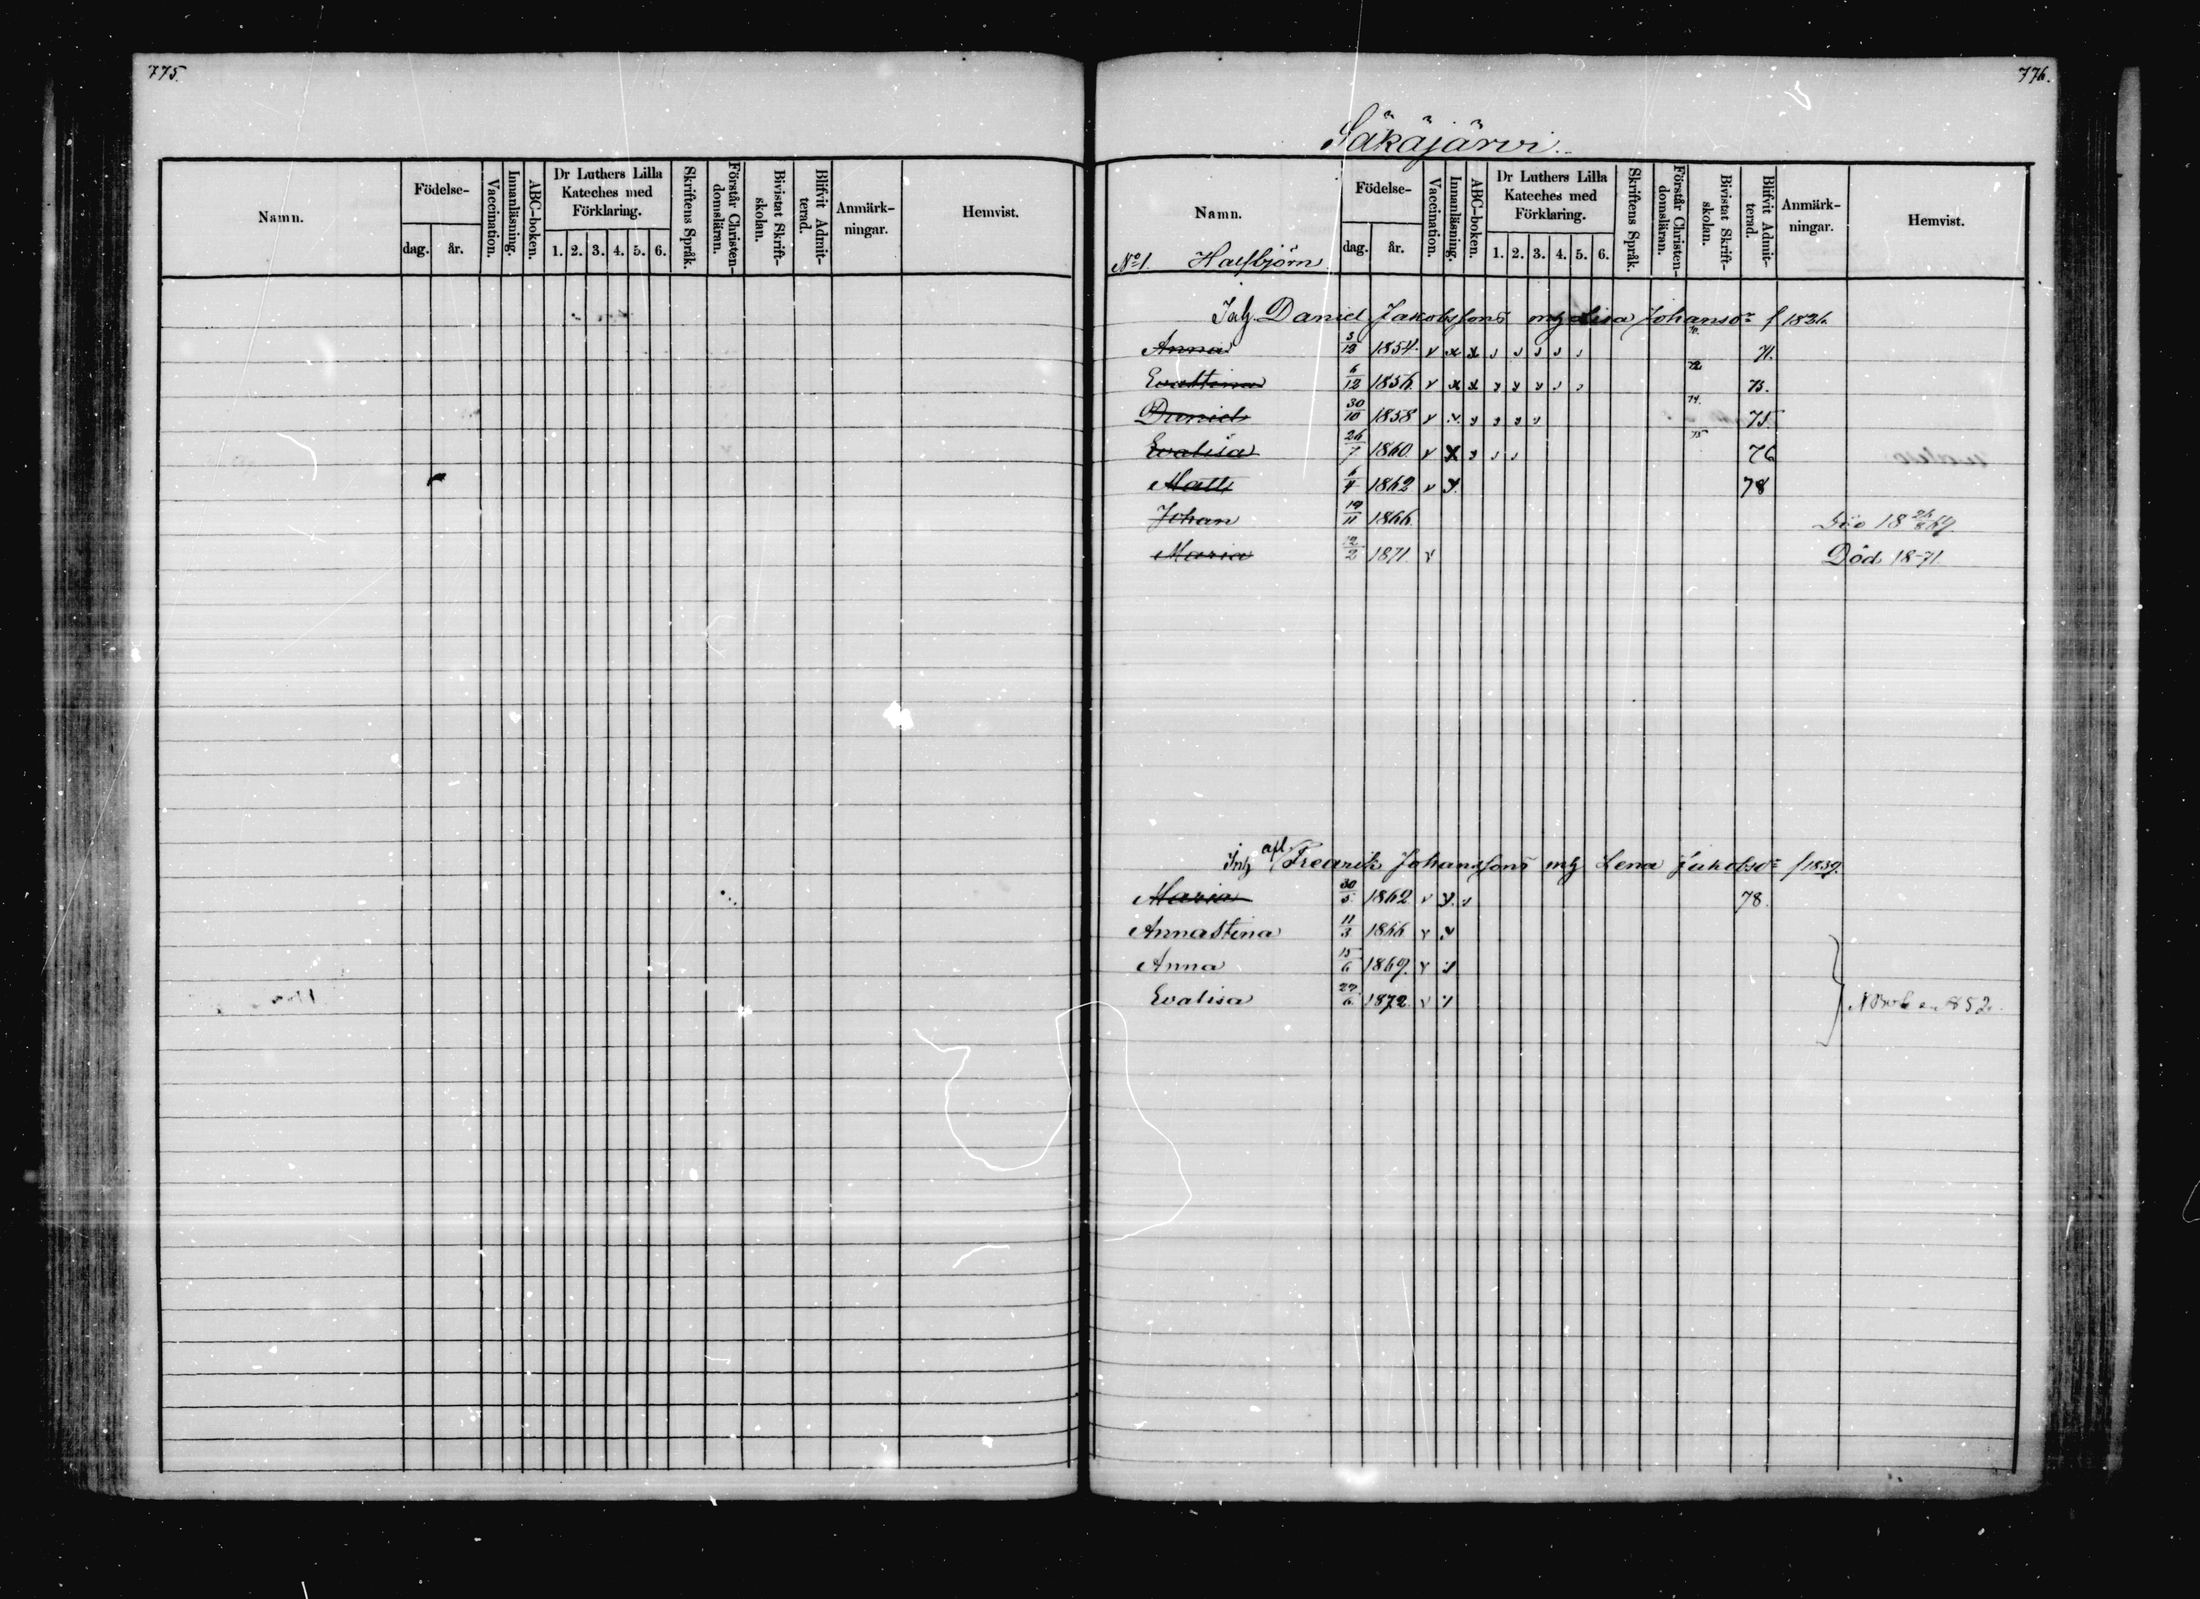 775.
Namn. Födelse- dag. år. Vaccination. Innanläsning. ABC-boken. Dr Luthers Lilla Kateches med Förklaring. 1. 2. 3. 4. 5. 6. Skriftens Språk. Förstår Christen-domsläran. Bivistat Skrift-skolan. Blifvit Admit-terad. Anmärk-ningar. Hemvist.
776.
Säkäjärvi.
Namn. Födelse- dag. år. Vaccination. Innanläsning. ABC-boken. Dr Luthers Lilla Kateches med Förklaring. 1. 2. 3. 4. 5. 6. Skriftens Språk. Förstår Christen-domsläran. Bivistat Skrift-skolan. Blifvit Admit-terad. Anmärk-ningar. Hemvist.
No 1. Halfbjörn
Daniel Jakobssons mh Lisa Johansdr f 1826.
Anna 5/12 1854. 71.
Evastina 6/12 1856 72 73.
Daniel 30/10 1858 74. 75
Evalisa 26/7 1860 75 76
Matts 6/4 1862 78
Johan 19/11 1866. Död 18 26/8 69
Maria 12/2 1871. Död 18-71
afl. Fredrik Johanssons mh Lena Jakobsdr f 1839.
Maria 30/5 1862 78.
Annastina 11/3 1866
Anna 15/6 1869.
Evalisa 27/6 1872 N Boken 852.